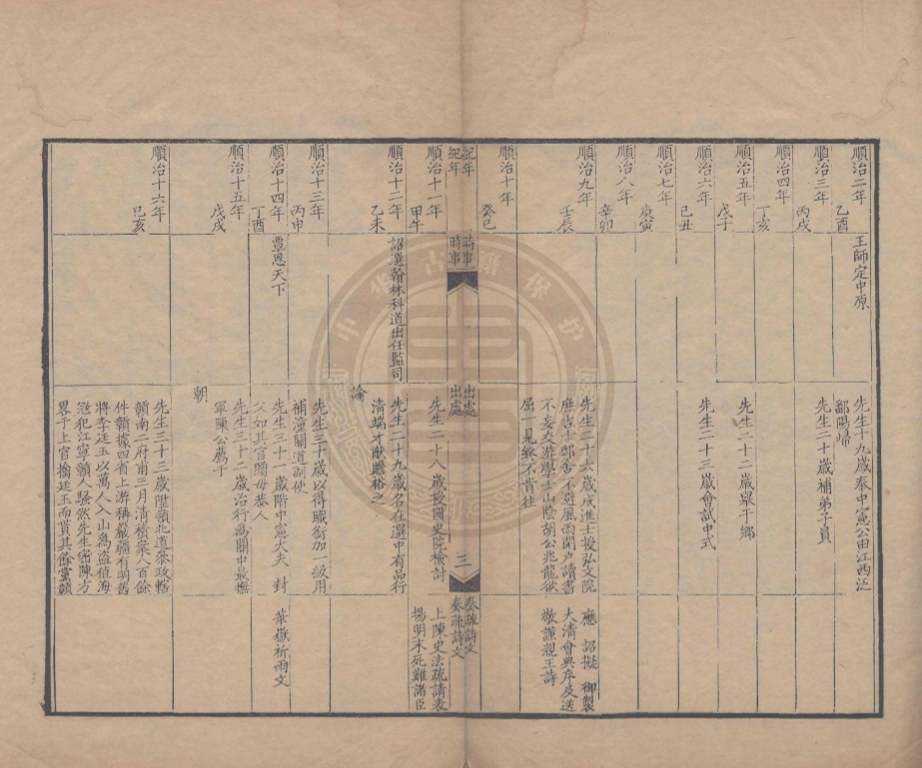 順治二年
乙酉
王師定中原
先生十九歲奉中憲公由江西泛
鄱陽歸
順治三年
丙戌
先生二十歲補弟子員
順治四年
丁亥
順治五年
戊子
先生二十二歲舉于鄉
順治六年
己丑
先生二十三歲會試中式
順治七年
庚寅
順治八年
辛卯
順治九年
壬辰
先生二十六歲成進士授弘文院
庶吉士邸舍不避風雨閉户讀書
不妄交游學士山陰胡公兆龍欲
屈一見終不肯往
應 詔擬 御製
大清會典序及送
敬謹親王詩
順治十年
癸巳
紀年
時事
出處
奏疏詩文
紀年
時事
出處
三
奏疏詩文
順治十一年
甲午
先生二十八歲授國史院檢討
上陳史法疏請表
揚明末死難諸臣
順治十二年
乙未
詔選翰林科道出任監司
先生二十九歲名在選中有品行
清端才猷贍裕之
諭
順治十三年
丙申
先生三十歲以得職銜加一級用
補潼關道副使
順治十四年
丁酉
覃恩天下
先生三十一歲階中憲大夫 封
父如其官贈母恭人
華嶽祈雨文
順治十五年
戊戌
先生三十二歲治行為關中最撫
軍陳公薦于
朝
順治十六年
己亥
先生三十三歲陞嶺北道叅政轄
贛南二府甫三月清積案八百餘
件贛據四省上游稱巖疆有明舊
將李廷玉以萬人入山為盜值海
寇犯江寧贛人騷然先生密陳方
畧于上官擒廷玉而貰其餘黨贛